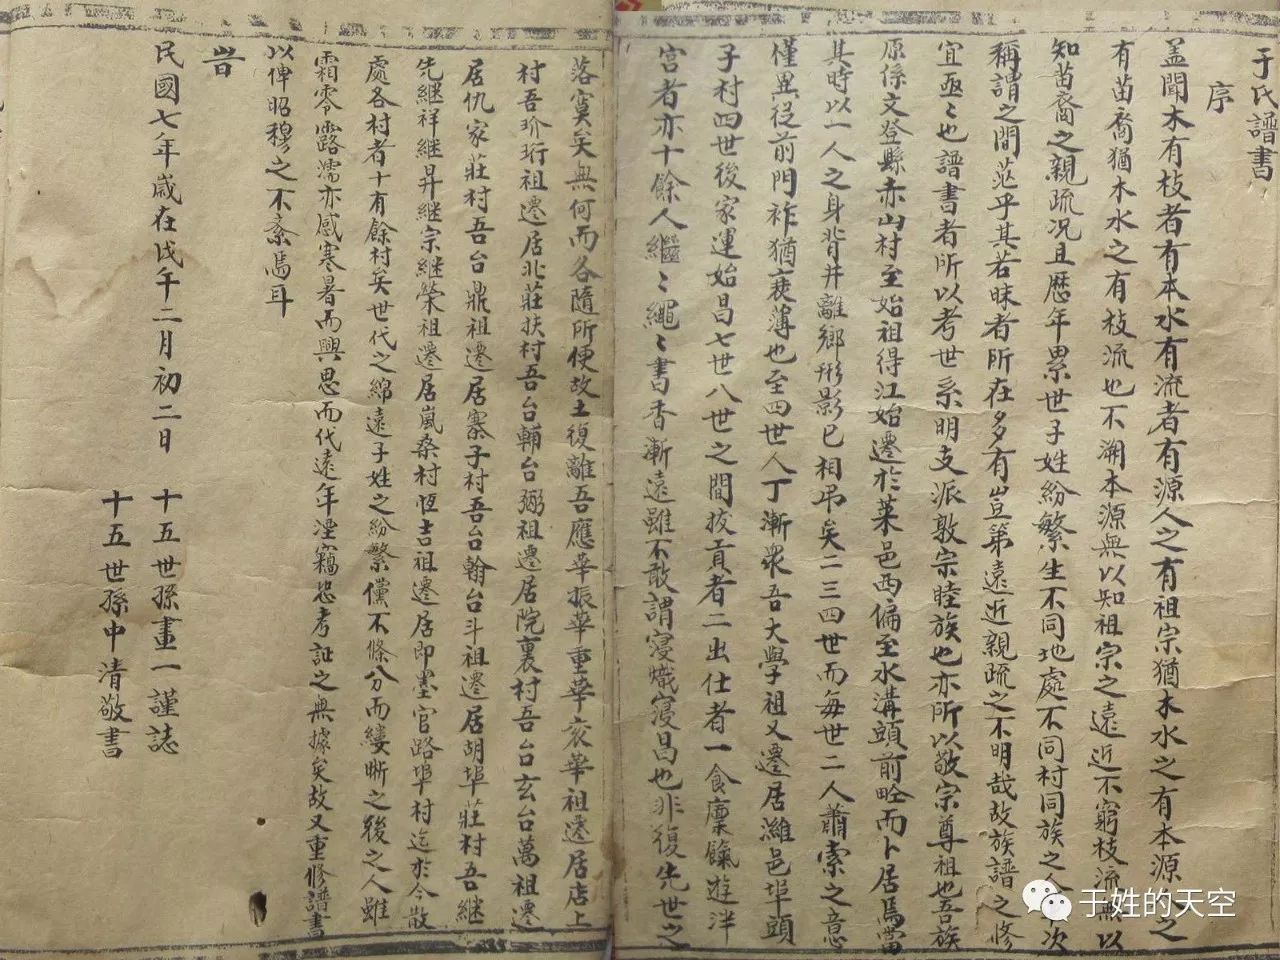 于氏譜書
序
盖聞木有枝者有本水有流者有源人之有祖宗猶木水之有本源人之
有苗裔猶木水之有枝流也不溯本源無以知祖宗之遠近不窮枝流無以
知苗裔之親疏况且歷年累世子姓紛繁生不同地處不同村同族之人次
稱謂之間茫乎其若昧者所在多有豈第遠近親疏之不明哉故族譜之修
宜亟〻也譜書者所以考世系明支派敦宗睦族也亦所以敬宗尊祖也吾族
原係文登縣赤山村至始祖得江始遷於萊邑西偏至水溝頭前疃而卜居焉當
其時以一人之身背井離鄉形影已相弔矣二三四世而每世二人蕭索之意
僅異從前門祚猶衰薄也至四世人丁漸衆吾大學祖又遷居濰邑埠頭
子村四世後家運始昌七世八世之間拔貢者二出仕者一食廪餼遊泮
宫者亦十餘人繼〻繩〻書香漸遠雖不敢謂寖熾寖昌也非復先世之
落寞矣無何而各隨所便故土復離吾應華振華重華衣華祖遷居店上
村吾玠珩祖遷居北莊扶村吾台輔台弼祖遷居院裏村吾台玄台萬祖遷
居仇家莊村吾台鼎祖遷居寨子村吾台翰台斗祖遷居胡埠莊村吾継
先継祥継昇継宗継榮祖遷居嵐桑村恆吉祖遷居即墨官路埠村迄於今散
處各村者十有餘村矣世代之綿遠子姓之紛繁儻不條分而縷晰之後之人雖
霜零露濡亦感寒暑而興思而代遠年湮竊恐考証之無據矣故又重修譜書
以俾昭穆之不紊焉耳
旹
民國七年歲在戊午二月初二日 十五世孫畫一謹誌
十五世孫中清敬書
于姓的天空